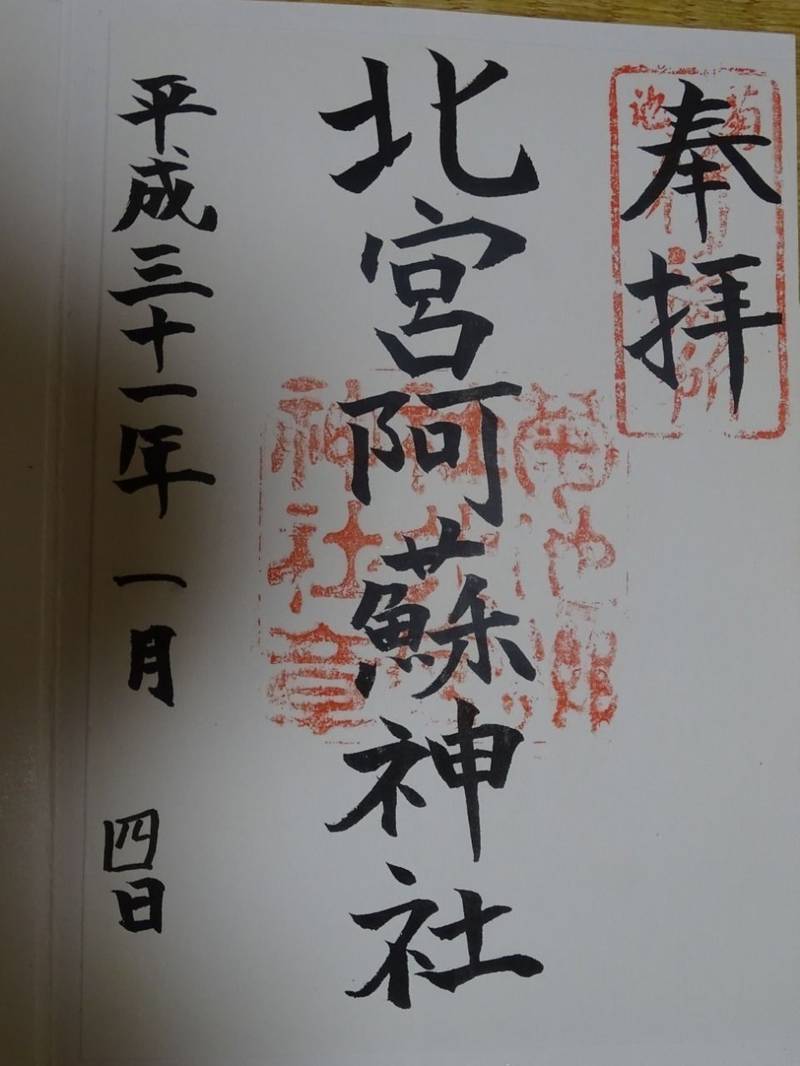 奉拝
北宮阿蘇神社
平成三十一年 一月 四日